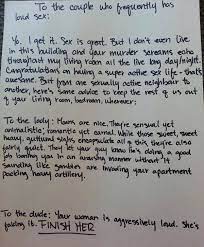 To the couple who frequently has
loud sex:
Yo. I get it. Sex is great. But I don't even live
in this building and your murder screams echo
throughout my living room all the live long day/night.
Congratulations on having a super active sex life - that's
awesome. But from one sexually active neighbour to
another, here's some advice to keep the rest of us out
of your living room, bedroom, wherever:
To the lady: Moans are nice. They're sensual yet
animalistic, romantic yet earnest. While those sweet, sweet
heavy, guttural sighs encapsulate all of this they're also
fairly quiet. They let your guy know he's doing a good
job boning you in an arousing manner without it
sounding like zombies are invading your apartment
packing heavy artillery.
To the dude: Your woman is aggressively loud. She's
faking it. FINISH HER